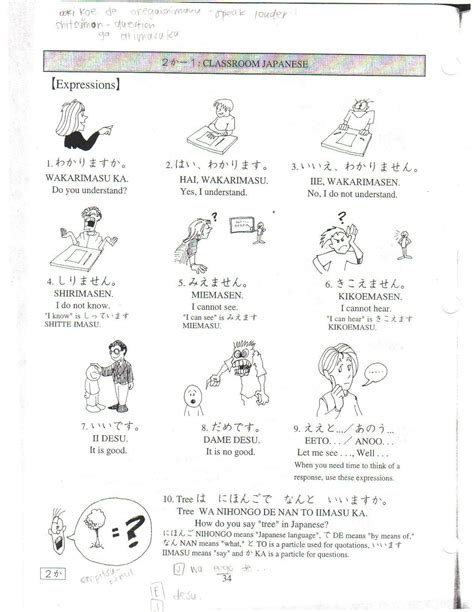 koe de onegaishimasu - speak louder
shitsumon - question
ga arimasu ka
2か－1 : CLASSROOM JAPANESE
【Expressions】
1. わかりますか。
WAKARIMASU KA.
Do you understand?
2. はい、わかります。
HAI, WAKARIMASU.
Yes, I understand.
3. いいえ、わかりません。
IIE, WAKARIMASEN.
No, I do not understand.
4. しりません。
SHIRIMASEN.
I do not know.
"I know" is しっています
SHITTE IMASU.
5. みえません。
MIEMASEN.
I cannot see.
"I can see" is みえます
MIEMASU.
6. きこえません。
KIKOEMASEN.
I cannot hear.
"I can hear" is きこえます
KIKOEMASU.
7. いいです。
II DESU.
It is good.
8. だめです。
DAME DESU.
It is no good.
9. ええと…／あのう…
EETO. . . / ANOO. . .
Let me see . . ., Well . . .
When you need time to think of a
response, use these expressions.
10. Tree は にほんごで なんと いいますか。
Tree WA NIHONGO DE NAN TO IIMASU KA.
How do you say "tree" in Japanese?
にほんご NIHONGO means "Japanese language", で DE means "by means of,"
なん NAN means "what," と TO is a particle used for quotations, いいます
IIMASU means "say" and か KA is a particle for questions.
=?
2か
34
J wa
E
desu.
J